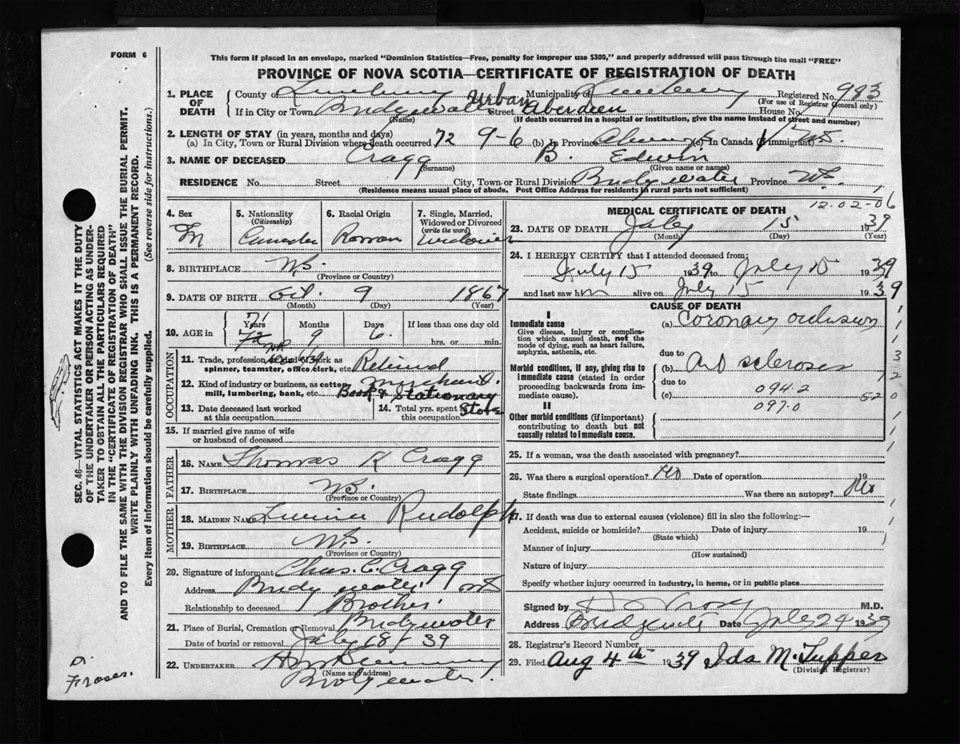 FORM 6
This form if placed in an envelope, marked "Dominion Statistics—Free, penalty for improper use $300," and properly addressed will pass through the mail "FREE"
PROVINCE OF NOVA SCOTIA—CERTIFICATE OF REGISTRATION OF DEATH
1. PLACE OF DEATH County of Lunenburg Municipality of Lunenburg Registered No. 993
(For use of Registrar General only)
If in City or Town Bridgewater Urban Street Aberdeen House No.
(Name) (If death occurred in a hospital or institution, give the name instead of street and number)
2. LENGTH OF STAY (in years, months and days)
(a) In City, Town or Rural Division where death occurred 72 9-6 (b) In Province Always (c) In Canada (if immigrant)
3. NAME OF DECEASED Cragg B. Edwin
(Surname) (Given name or names)
RESIDENCE No. Street City, Town or Rural Division Bridgewater Province N.S.
(Residence means usual place of abode. Post Office Address for residents in rural parts not sufficient)
4. Sex M
5. Nationality (Citizenship)
6. Racial Origin
7. Single, Married, Widowed or Divorced (write the word) Widower
8. BIRTHPLACE N.S.
(Province or Country)
9. DATE OF BIRTH Oct. 9 1867
(Month) (Day) (Year)
10. AGE in 71 Years Months 9 Days 6 If less than one day old hrs. or min.
OCCUPATION
11. Trade, profession or kind of work as spinner, teamster, office clerk, etc. Retired
12. Kind of industry or business, as cotton mill, lumbering, bank, etc. Merchant.
Book & Stationary Store
13. Date deceased last worked at this occupation
14. Total yrs. spent in this occupation
15. If married give name of wife or husband of deceased
FATHER
16. NAME Thomas R Cragg
17. BIRTHPLACE N.S.
(Province or Country)
MOTHER
18. MAIDEN NAME Rudolph
19. BIRTHPLACE N.S.
(Province or Country)
20. Signature of informant Chas. C. Cragg
Address Bridgewater
Relationship to deceased Brother
21. Place of Burial, Cremation or Removal Bridgewater
Date of burial or removal July 18/39
22. UNDERTAKER
(Name and address)
Bridgewater.
D. Fraser.
MEDICAL CERTIFICATE OF DEATH
12-02-06
23. DATE OF DEATH July 15 1939
(Month) (Day) (Year)
24. I HEREBY CERTIFY that I attended deceased from:
July 15 1939 to July 15 1939
and last saw him alive on July 15 1939
CAUSE OF DEATH
I
Immediate cause
Give disease, injury or complication which caused death, not the mode of dying, such as heart failure, asphyxia, asthenia, etc.
(a) Coronary occlusion
due to
Morbid conditions, if any, giving rise to immediate cause (stated in order proceeding backwards from immediate cause).
(b) Art sclerosis
due to 094.2
(c)
097.0
II
Other morbid conditions (if important) contributing to death but not causally related to immediate cause.
25. If a woman, was the death associated with pregnancy?
26. Was there a surgical operation? No Date of operation 19
State findings Was there an autopsy? No
27. If death was due to external causes (violence) fill in also the following:—
Accident, suicide or homicide? Date of injury 19
(State which)
Manner of injury
(How sustained)
Nature of injury
Specify whether injury occurred in industry, in home, or in public place
Signed by M.D.
Address Bridgewater Date July 24 1939
28. Registrar's Record Number
29. Filed Aug 4th 1939 Ida M. Tupper
(Division Registrar)
SEC. 46—VITAL STATISTICS ACT MAKES IT THE DUTY
OF THE UNDERTAKER OR PERSON ACTING AS UNDER-
TAKER TO OBTAIN ALL THE PARTICULARS REQUIRED
IN THE "CERTIFICATE OF REGISTRATION OF DEATH"
AND TO FILE THE SAME WITH THE DIVISION REGISTRAR WHO SHALL ISSUE THE BURIAL PERMIT.
WRITE PLAINLY WITH UNFADING INK. THIS IS A PERMANENT RECORD.
Every item of information should be carefully supplied. (See reverse side for instructions.)